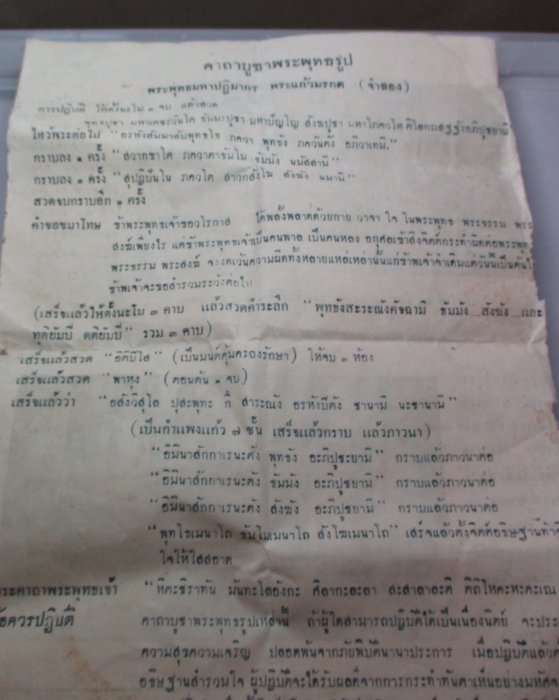 คาถาบูชาพระพุทธรูป
พระพุทธมหาปฏิมากร พระแก้วมรกต (จำลอง)
การปฏิบัติ ให้ตั้งนะโม ๓ จบ แล้วสวด
พุทธบูชา มหาเตชะวันโต ธัมมะปูชา มหาปัญโญ สังฆปูชา มหาโภคะวะโห
ไหว้พระต่อไป "อรหังสัมมาสัมพุทธโธ ภควา พุทธัง ภควันตัง อภิวาเทมิ."
กราบลง ๑ ครั้ง "สวากขาโต ภควาตาธัมโม ธัมมัง นมัสสามิ"
กราบลง ๑ ครั้ง "สุปฏิปันโน ภควโต สาวกสังโฆ สังฆัง นมามิ"
สวดจบกราบอีก ๑ ครั้ง
คำขอขมาโทษ ข้าพระพุทธเจ้าขอวโรกาส ได้พลั้งพลาดด้วยกาย วาจา ใจ ในพระพุทธ พระธรรม พระ
สงฆ์เพียงไร แต่ข้าพระพุทธเจ้าเป็นคนพาล เป็นคนหลง อกุศลเข้าสิงจิตต์กระทำผิดต่อพระพุทธ
พระธรรม พระสงฆ์ จงงดเว้นความผิดทั้งหลายแหล่เหล่านั้นแก่ข้าพเจ้าจำเดิมแต่วันนี้เป็นต้นไป
ข้าพเจ้าจะขอสำรวมระวังต่อไป
(เสร็จแล้วให้ตั้งนะโม ๓ คาบ แล้วสวดคำระลึก "พุทธังสะระณังคัจฉามิ ธัมมัง สังฆัง และ
ทุติยัมปิ ตติยัมปิ" รวม ๓ คาบ)
เสร็จแล้วสวด "อิติปิโส" (เป็นมนต์คุ้มครองรักษา) ให้จบ ๓ ห้อง
เสร็จแล้วสวด "พาหุง" (ตอนต้น ๑ จบ)
เสร็จแล้วว่า "อสังวิสุโล ปุสะพุทะ ก็ สาระณัง อรหังบีตัง ชานามิ นะชานามิ"
(เป็นกำแพงแก้ว ๗ ชั้น เสร็จแล้วกราบ แล้วภาวนา)
"อิมินาสักกาเรนะตัง พุทธัง อะภิปูชะยามิ" กราบแล้วภาวนาต่อ
"อิมินาสักกาเรนะตัง ธัมมัง อะภิปูชยามิ" กราบแล้วภาวนาต่อ
"อิมินาสักกาเรนะตัง สังฆัง อะภิปูชยามิ" กราบแล้วภาวนาต่อ
"พุทโธเมนาโถ ธัมโมเมนาโถ สังโฆเมนาโถ" เสร็จแล้วตั้งจิตต์อธิษฐานทำ
ใจให้ใสสอาด
พระคาถาพระพุทธเจ้า "หิตะชิราทัน มันทะโลอังกะ ศีลากะละลา สะสาลาละติ ติถีโหคะหะคะเณ
ข้อควรปฏิบัติ คาถาบูชาพระพุทธรูปเหล่านี้ ถ้าผู้ใดสามารถปฏิบัติได้เป็นเนืองนิตย์ จะประ
ความสุขความเจริญ ปลอดพ้นจากภัยพิบัตินานาประการ เมื่อปฏิบัติแล้ว
อธิษฐานสำรวมใจ ผู้ปฏิบัติจะได้รับผลดีจากการกระทำทันตาเห็นอย่างมหัศ